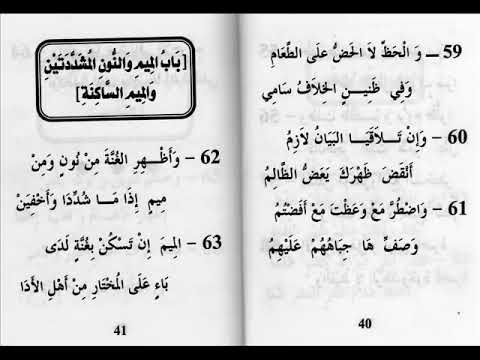 59 – وَ الْحَظِّ لَا الْحَضُّ عَلَى الطَّعَامِ
وَفِي ظَنِينٍ الْخِلَافُ سَامِي
60 – وَإِنْ تَلَاقَيَا الْبَيَانُ لَازِمُ
أَنْقَضَ ظَهْرَكَ يَعَضُّ الظَّالِمُ
61 – وَاضْطُرَّ مَعْ وَعَظْتَ مَعْ أَفَضْتُمُ
وَصَفِّ هَا جِبَاهُهُمْ عَلَيْهِمُ
40
[بَابُ الْمِيمِ وَالنُّونِ الْمُشَدَّدَتَيْنِ
وَالْمِيمِ السَّاكِنَةِ]
62 – وَأَظْهِرِ الْغُنَّةَ مِنْ نُونٍ وَمِنْ
مِيمٍ إِذَا مَا شُدِّدَا وَأَخْفِيَنْ
63 – الْمِيمَ إِنْ تَسْكُنْ بِغُنَّةٍ لَدَى
بَاءٍ عَلَى الْمُخْتَارِ مِنْ أَهْلِ الْأَدَا
41